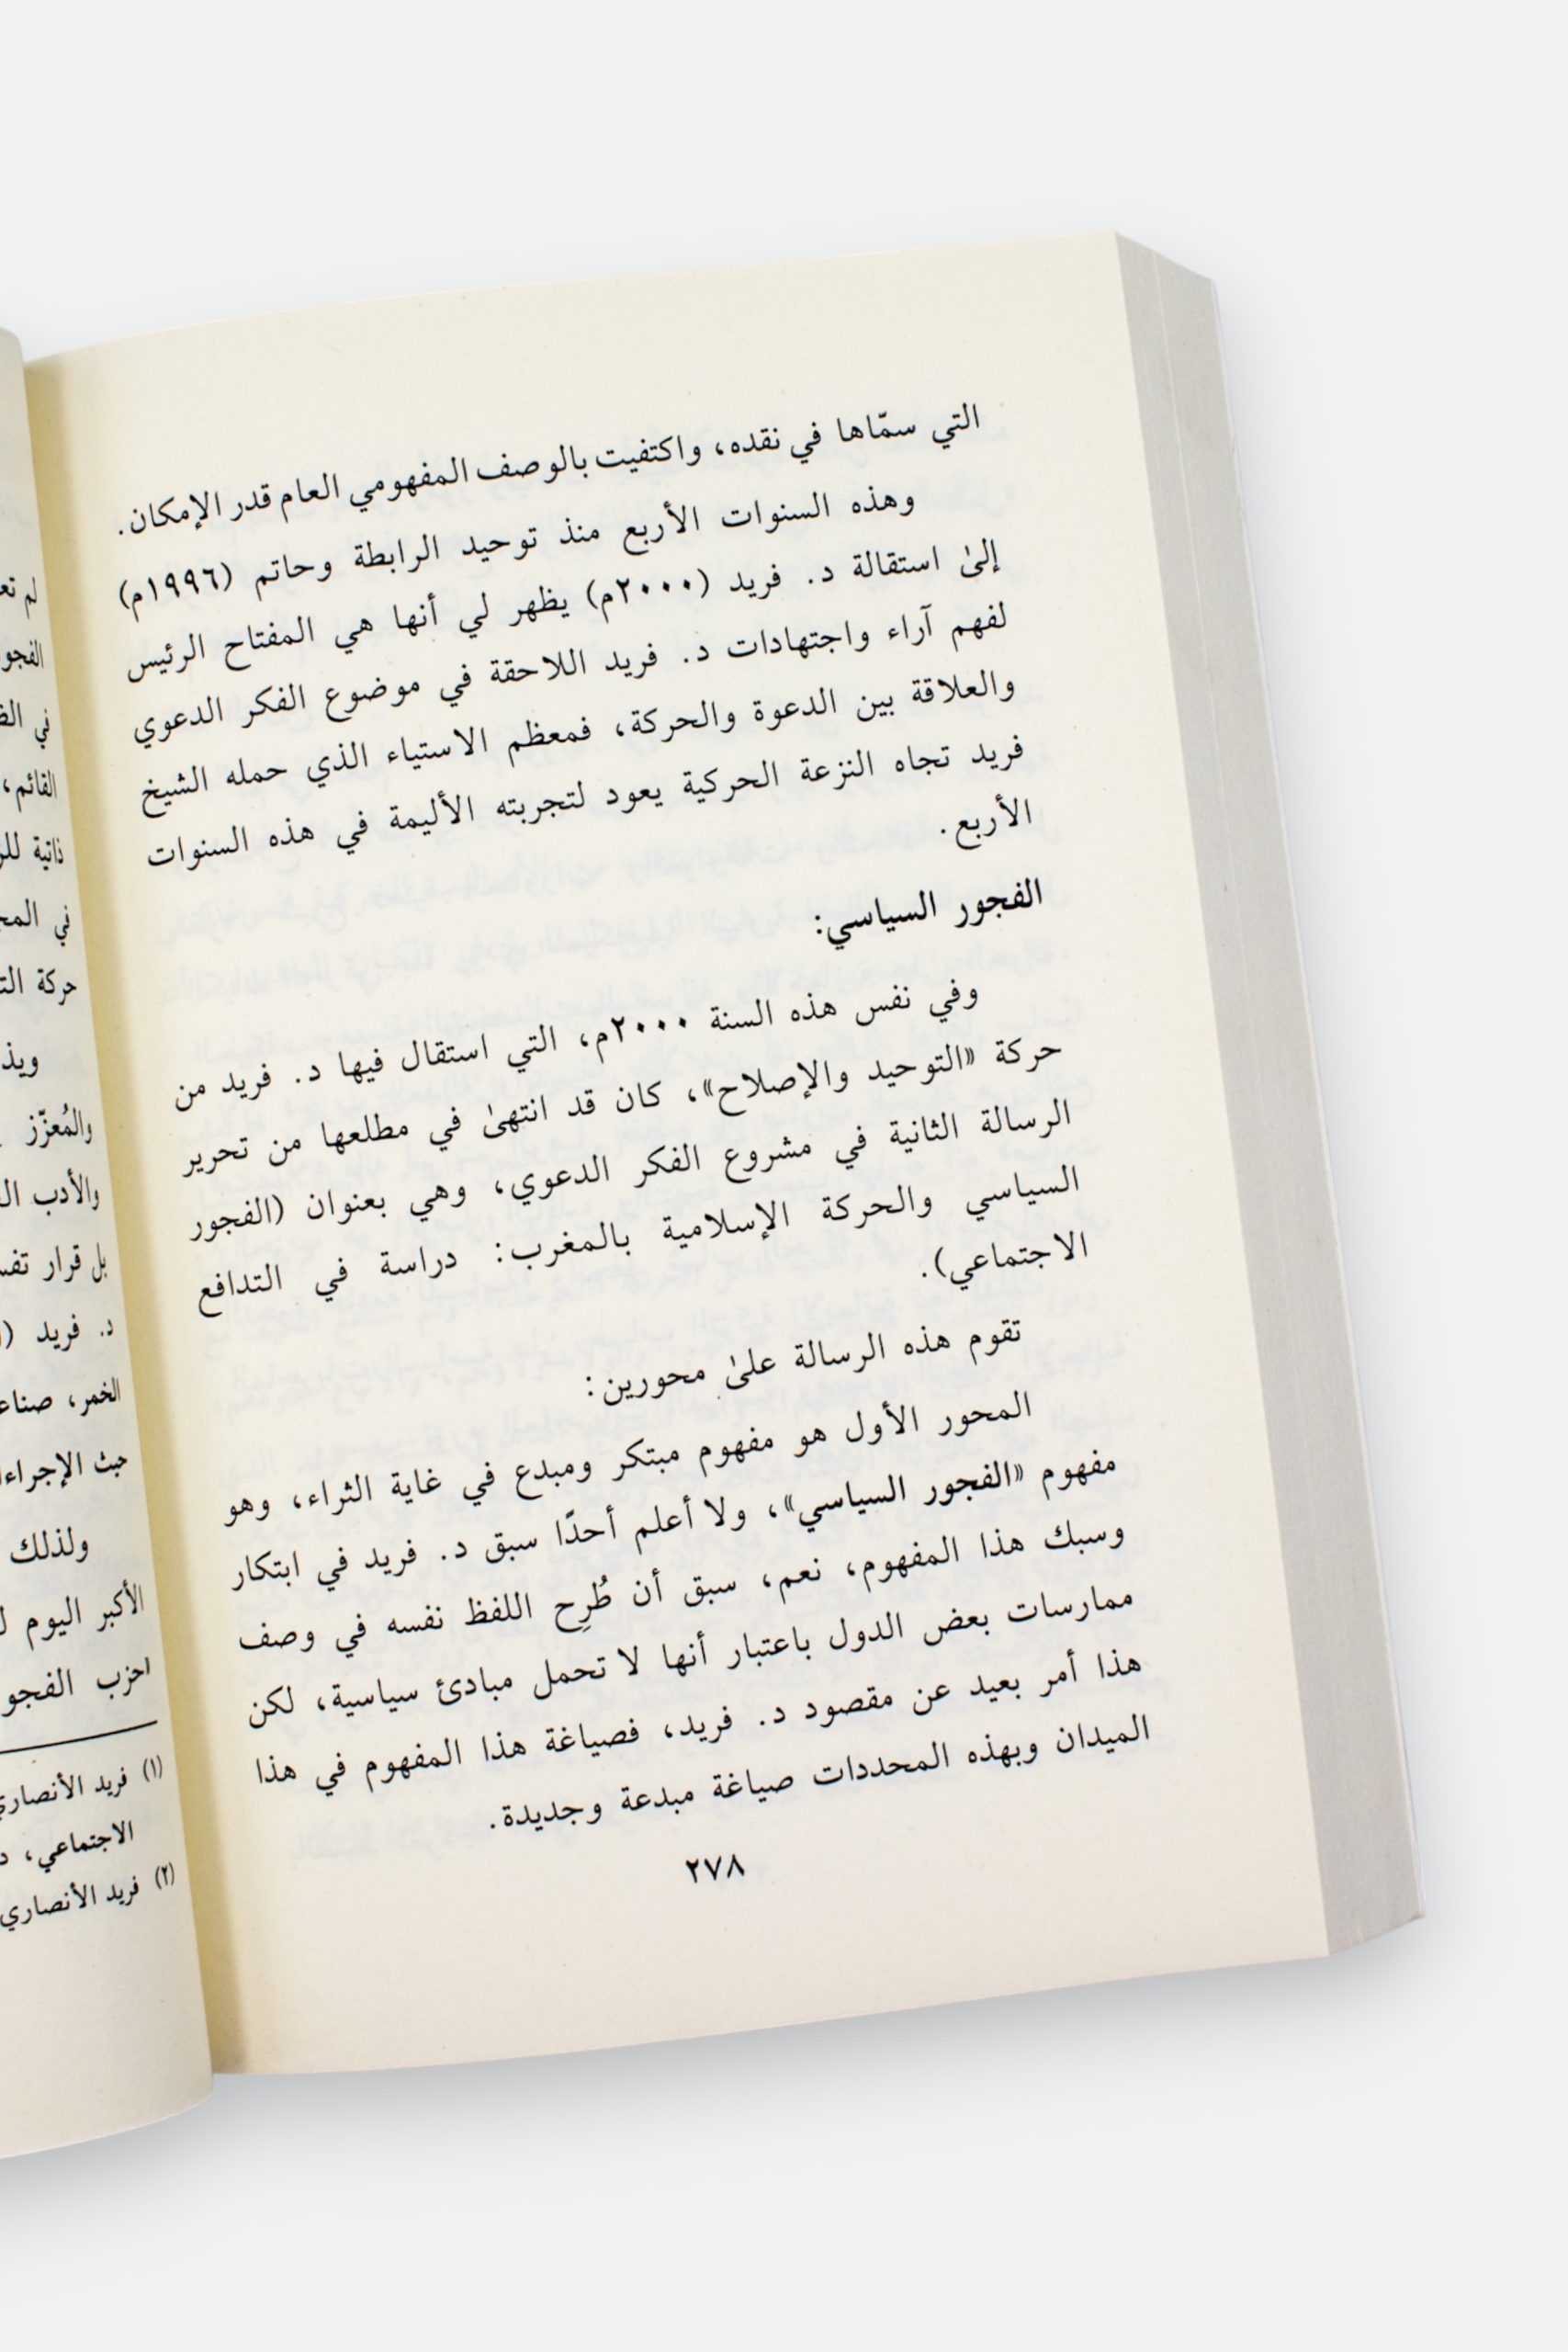 التي سمّاها في نقده، واكتفيت بالوصف المفهومي العام قدر الإمكان.
وهذه السنوات الأربع منذ توحيد الرابطة وحاتم (١٩٩٦م)
إلىٰ استقالة د. فريد (٢٠٠٠م) يظهر لي أنها هي المفتاح الرئيس
لفهم آراء واجتهادات د. فريد اللاحقة في موضوع الفكر الدعوي
والعلاقة بين الدعوة والحركة، فمعظم الاستياء الذي حمله الشيخ
فريد تجاه النزعة الحركية يعود لتجربته الأليمة في هذه السنوات
الأربع.
الفجور السياسي:
وفي نفس هذه السنة ٢٠٠٠م، التي استقال فيها د. فريد من
حركة «التوحيد والإصلاح»، كان قد انتهىٰ في مطلعها من تحرير
الرسالة الثانية في مشروع الفكر الدعوي، وهي بعنوان (الفجور
السياسي والحركة الإسلامية بالمغرب: دراسة في التدافع
الاجتماعي).
تقوم هذه الرسالة علىٰ محورين:
المحور الأول هو مفهوم مبتكر ومبدع في غاية الثراء، وهو
مفهوم «الفجور السياسي»، ولا أعلم أحدًا سبق د. فريد في ابتكار
وسبك هذا المفهوم، نعم، سبق أن طُرِح اللفظ نفسه في وصف
ممارسات بعض الدول باعتبار أنها لا تحمل مبادئ سياسية، لكن
هذا أمر بعيد عن مقصود د. فريد، فصياغة هذا المفهوم في هذا
الميدان وبهذه المحددات صياغة مبدعة وجديدة.
٢٧٨
لم
في
القائم،
ذاتية
في
حركة
والمُعزّز
والأدب
بل قرار
د. فريد
الخمر،
حيث
ولذلك
الأكبر اليوم
(١) فريد الأنصاري
الاجتماعي،
(٢) فريد الأنصاري